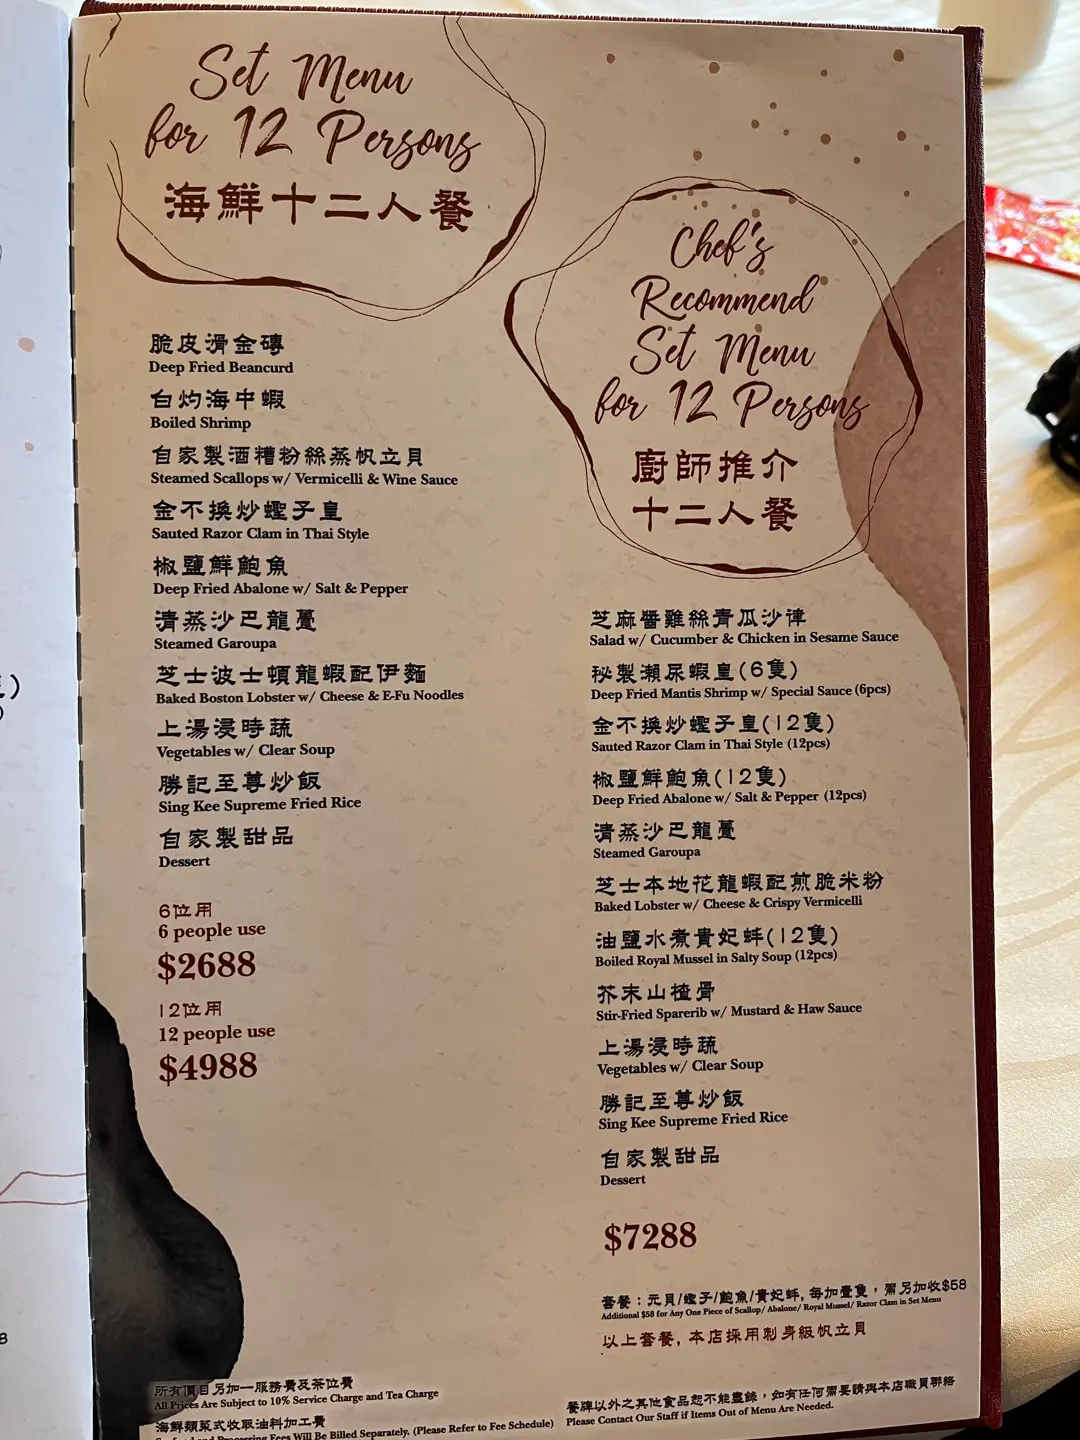 Set Menu
for 12 Persons
海鮮十二人餐
脆皮滑金磚
Deep Fried Beancurd
白灼海中蝦
Boiled Shrimp
自家製酒糟粉絲蒸帆立貝
Steamed Scallops w/ Vermicelli & Wine Sauce
金不換炒蟶子皇
Sauted Razor Clam in Thai Style
椒鹽鮮鮑魚
Deep Fried Abalone w/ Salt & Pepper
清蒸沙巴龍躉
Steamed Garoupa
芝士波士頓龍蝦配伊麵
Baked Boston Lobster w/ Cheese & E-Fu Noodles
上湯浸時蔬
Vegetables w/ Clear Soup
勝記至尊炒飯
Sing Kee Supreme Fried Rice
自家製甜品
Dessert
6位用
6 people use
$2688
12位用
12 people use
$4988
Chef's
Recommend
Set Menu
for 12 Persons
廚師推介
十二人餐
芝麻醬雞絲青瓜沙律
Salad w/ Cucumber & Chicken in Sesame Sauce
秘製瀨尿蝦皇(6隻)
Deep Fried Mantis Shrimp w/ Special Sauce (6pcs)
金不換炒蟶子皇(12隻)
Sauted Razor Clam in Thai Style (12pcs)
椒鹽鮮鮑魚(12隻)
Deep Fried Abalone w/ Salt & Pepper (12pcs)
清蒸沙巴龍躉
Steamed Garoupa
芝士本地花龍蝦配煎脆米粉
Baked Lobster w/ Cheese & Crispy Vermicelli
油鹽水煮貴妃蚌(12隻)
Boiled Royal Mussel in Salty Soup (12pcs)
芥末山楂骨
Stir-Fried Sparerib w/ Mustard & Haw Sauce
上湯浸時蔬
Vegetables w/ Clear Soup
勝記至尊炒飯
Sing Kee Supreme Fried Rice
自家製甜品
Dessert
$7288
套餐：元貝/蟶子/鮑魚/貴妃蚌, 每加壹隻，需另加收$58
Additional $58 for Any One Piece of Scallop/ Abalone/ Royal Mussel/ Razor Clam in Set Menu
以上套餐, 本店採用刺身級帆立貝
所有價目另加一服務費及茶位費
All Prices Are Subject to 10% Service Charge and Tea Charge
海鮮類菜式收取油料加工費
Seafood and Processing Fees Will Be Billed Separately. (Please Refer to Fee Schedule)
餐牌以外之其他食品恕不能盡錄，如有任何需要請與本店職員聯絡
Please Contact Our Staff if Items Out of Menu Are Needed.